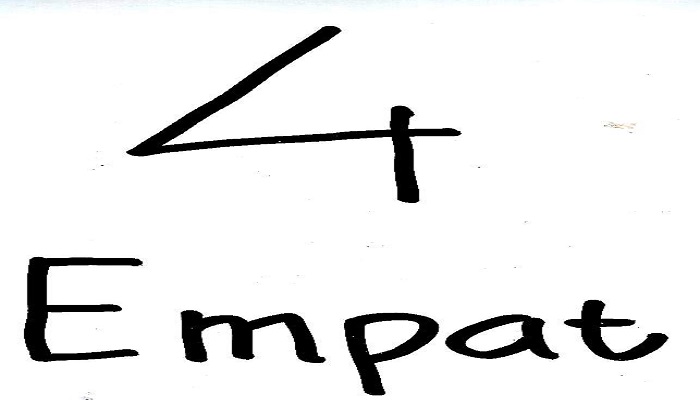 4
Empat